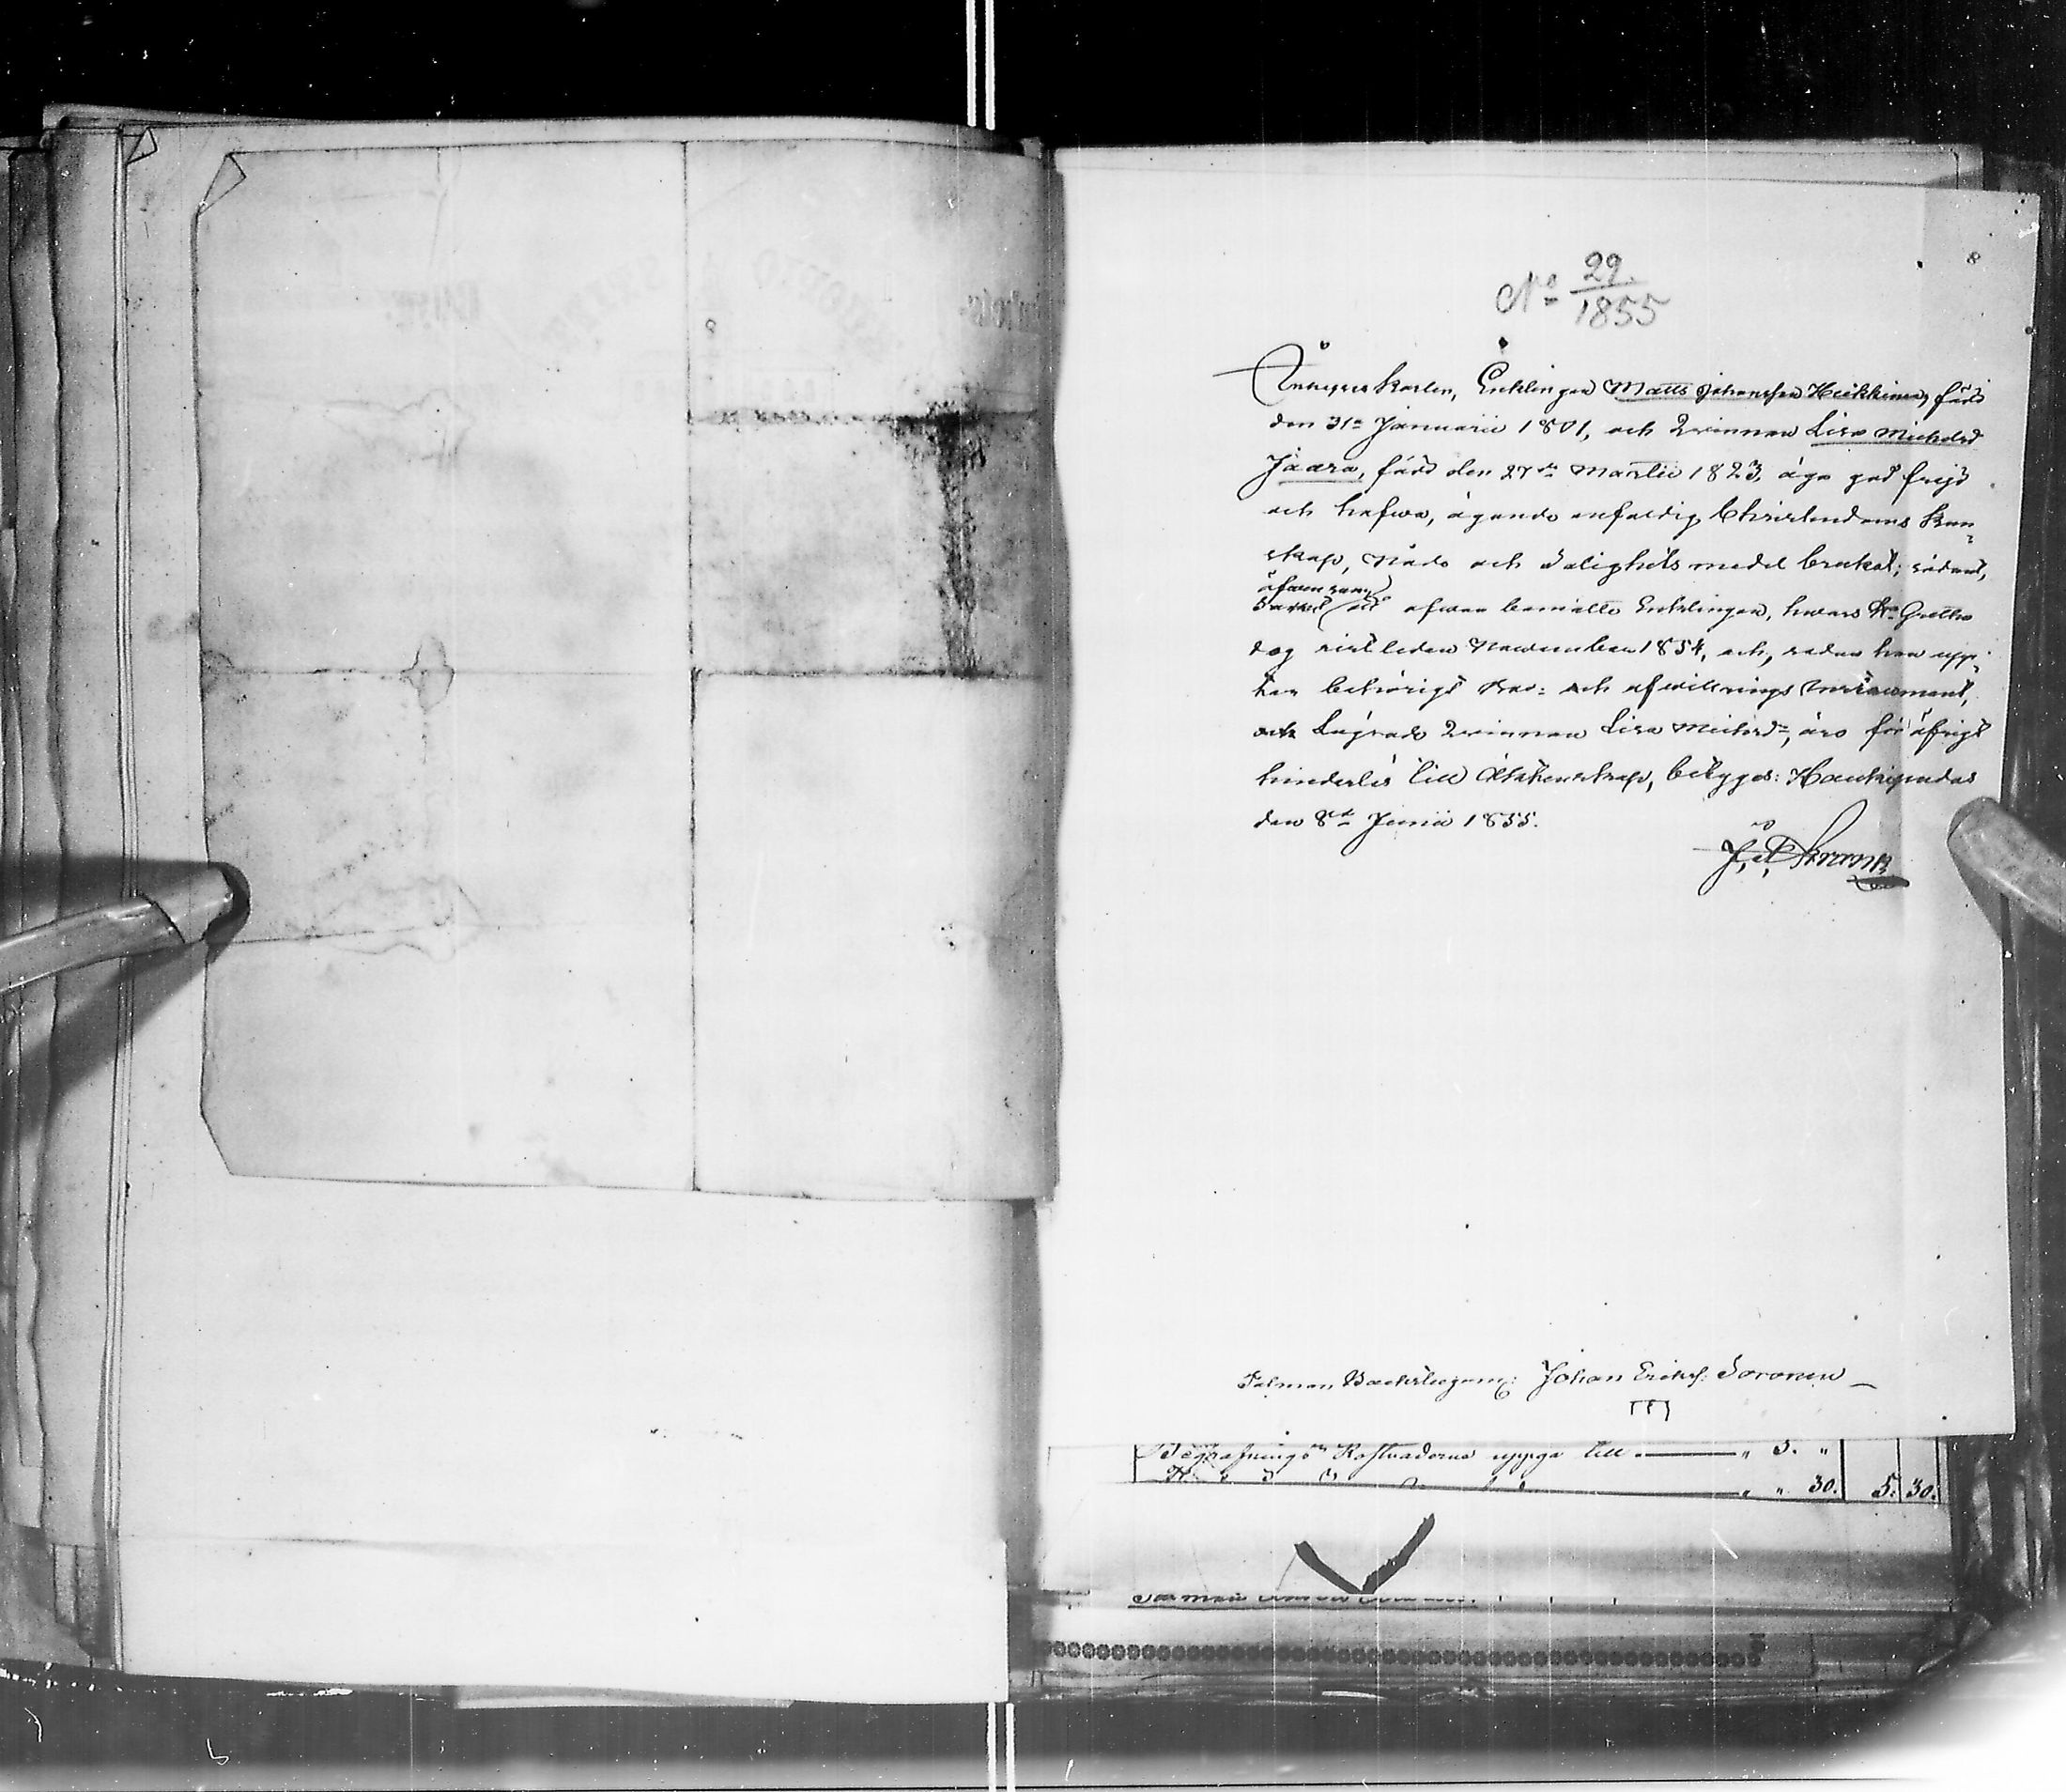 8
No 29./1855
Enklingen Matts Johansson Heikkinen, född
den 31a Januarii 1801, och Qvinnan Lisa Michelsd
Jaara, född den 27de Martii 1823, äga god frejd
och hafwa, ägande enfaldig Christendoms kun-
skap, Nåde och Salighets medel brukat; sådant,
äfwensom
att ofwan bemälte Enklingen, hwars Gretha
dog sistleden November 1854, och, sedan han upp-
behörigt och afwittrings Instrument,
och Lägrade Qvinnan Lisa Michsdr, äro för öfrigt
hinderlös till Äktenskap, betygas: Haukipudas
den 8de Junii 1855.
Talman Johan Erikss: Soronen
Begrafnings Kostnaderne uppgå till — " 5. "
" " 30. 5. 30.